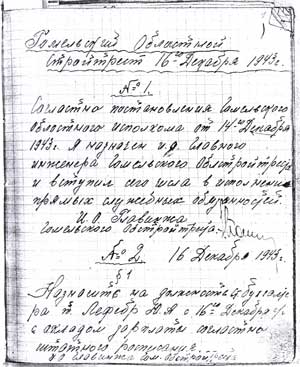 Гомельский Областной
Стройтрест 16го Декабря 1943г.
№ 1.
Согласно постановления Гомельского
областного исполкома от 14-го Декабря
1943г. я назначен и.о. Главного
инженера Гомельского Облстройтреста
и вступил сего числа в исполнение
прямых служебных обязаностей.
И.О. Главинжа
Гомельского Обстройтреста
№ 2. 16 Декабря 1943г.
§ 1
Назначить на должность бухгалте
ра т. М.Я. с 16го Декабря с/г
с окладом зарплаты согласно
штатного росписания.
ио Главинжа Гом. Обстройтреста